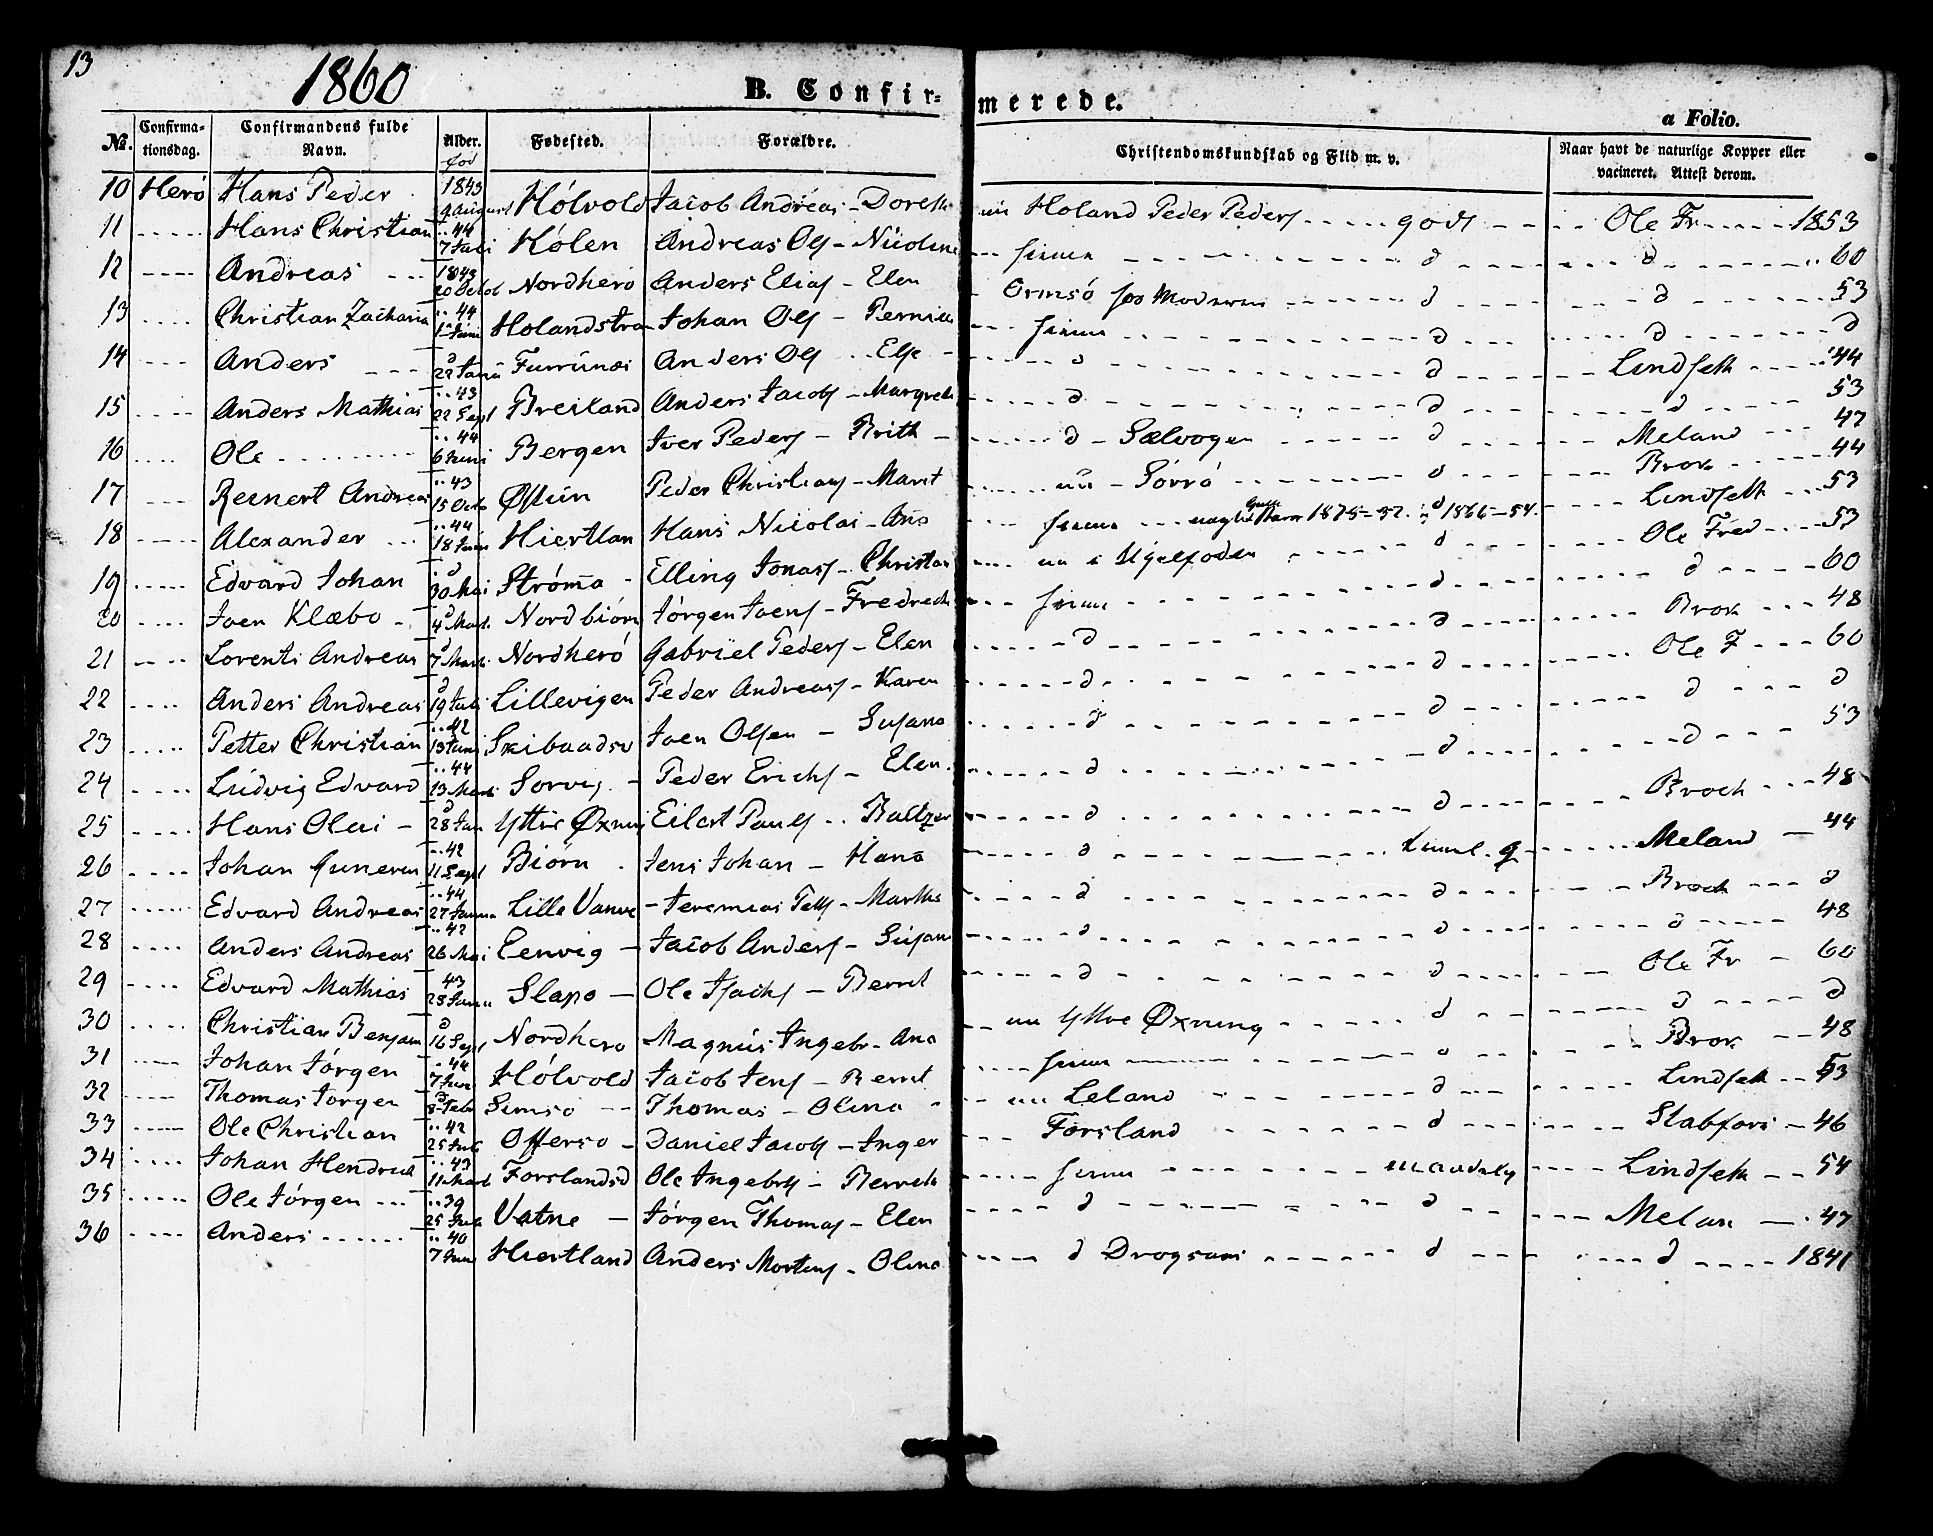 13
1860
B. Confir-merede.
a Folio.
No. Confirmationsdag. Confirmandens fulde Navn. Alder. Fødested. Forældre. Christendomskundskab og Flid m. v. Naar havt de naturlige Kopper eller vacineret. Attest derom.
fød
10 Herö Hans Peder 1843 9 August Hölvold Jacob Andreas - Doreth nu Holand Peder Peders godt Ole Fr 1853
11 Hans Christian 44 7 Juli Kölen Andreas Ols - Nicoline d d 60
12 Andreas 1843 20 Octob Nordherö Anders Elias - Elen Ormsö hos Moderen d d 53
13 Christian Zacharia 44 1 Juni Holandstra Johan Ols - Pernill d d d
14 Anders d 22 Furrunes Anders Ols - Else d d Lindseth 44
15 Anders Mathias 43 22 Sept Breiland Anders Jacobs - Margreth d d d 53
16 Ole 44 6 Juni Bergen Iver Peders - Brith d - Sælvogen d Meland 47
17 Reinert Andreas 43 15 Octo Østün Peder Christians - Marit nu - Sörrö d Brok 44
18 Alexander 44 18 Juni Hiertlan Hans Nicolai - Ane 1875-32. 1866-54. Lindseth 53
19 Edvard Johan d 30 Mai Ströma - Elling Jonas - Christian nu i Ugelfoden d Ole Fred 53
20 Joen Klæbo d 4 Nordbiörn Jörgen Joens - Fredrech d d 60
21 Lorents Andreas d 7 Marts Nordherö Gabriel Peders - Elen d d Brok 48
22 Anders Andreas d 19 Juli Lillevigen Peder Andreas - Karen d d Ole F 60
23 Petter Christian 42 13 Juni Skibaadsv Joen Olsen - Susana d d d d
24 Ludvig Edvard 44 13 Sorvig - Peder Erichs - Elen d d d 53
25 Hans Olai - d 28 Jan Yttre Øxning Eilert Pauls - Baltzer d d Broch 48
26 Johan Guneren 42 11 Sept Biörn Jens Johan - Hana d g Meland 44
27 Edvard Andreas 44 27 Lille Vanve - Jeremias Pels - Marthe d d Broch d
28 Anders Andreas 42 26 Mai Eenvig - Jacob Anders - Susan d d d 48
29 Edvard Mathias 43 28 Slapo - Ole Isachs - Berret d d Ole Fr 60
30 Christian Benjam d 16 Sept Nordhero Magnus Ingebr - Ana nu Yttre Øxning d d d
31 Johan Jörgen 44 7 Jun Hölvold Jacob Jens - Berret d Brok 48
32 Thomas Jorgen d 8 Febr Simso Thomas - Olina nu Leland d Lindseth 53
33 Ole Christian 42 25 Juli Offerso - Daniel Jacobs - Inger Forsland d Stabfors 46
34 Johan Hendrich 43 11 Forslandsd Ole Ingebrs - Berreth maadelig Lindseth 54
35 Ole Jörgen 39 25 Vatne - Jörgen Thomas - Elen d d Melan 47
36 Anders 40 7 Jun Hiertland Anders Mortens - Olina d Drogsam d d 1841